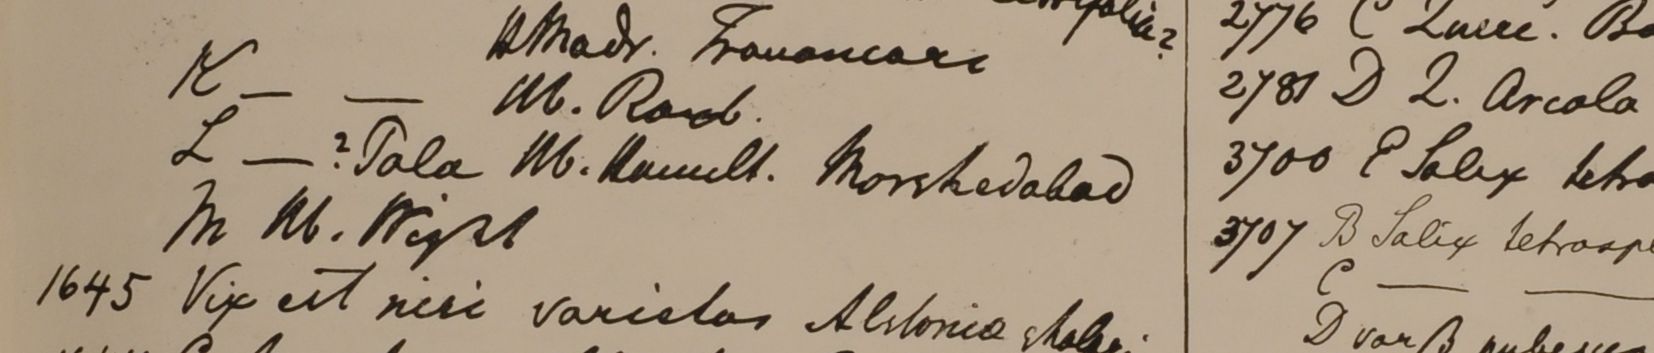 H Madr. Travancore
K — — Hb. Roxb.
L — ? Tala Hb. Hamilt. Morshedabad
M Hb. Wight
1645 Vix est nisi varietas Alstonia
2776 C Querc.
2781 D Q. Arcola
3700 E Salix tetra
3707 B Salix tetraspe
C — —
D var β pubesce